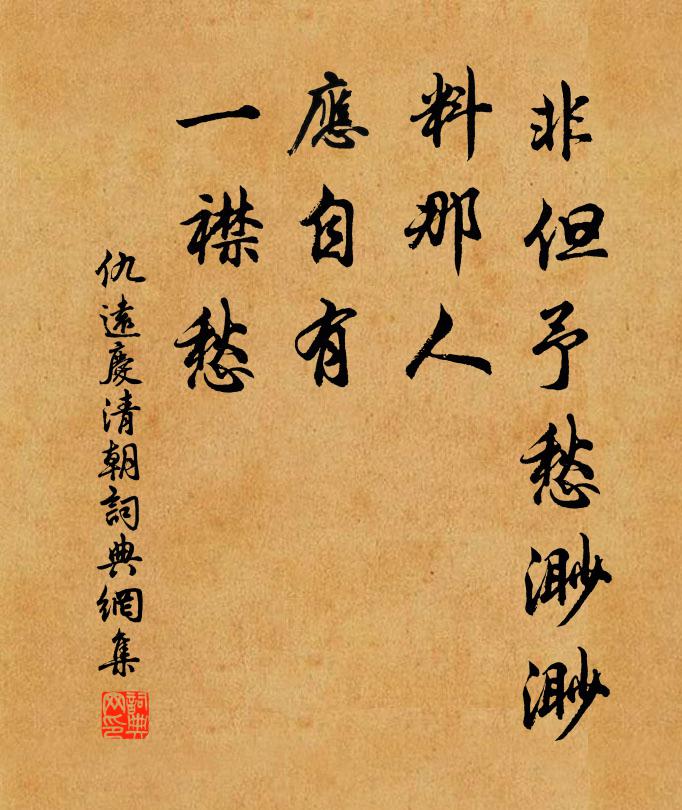 非但予愁渺渺
料那人
應自有
一襟愁
仇遠慶清朝詞典網集
詞典網印